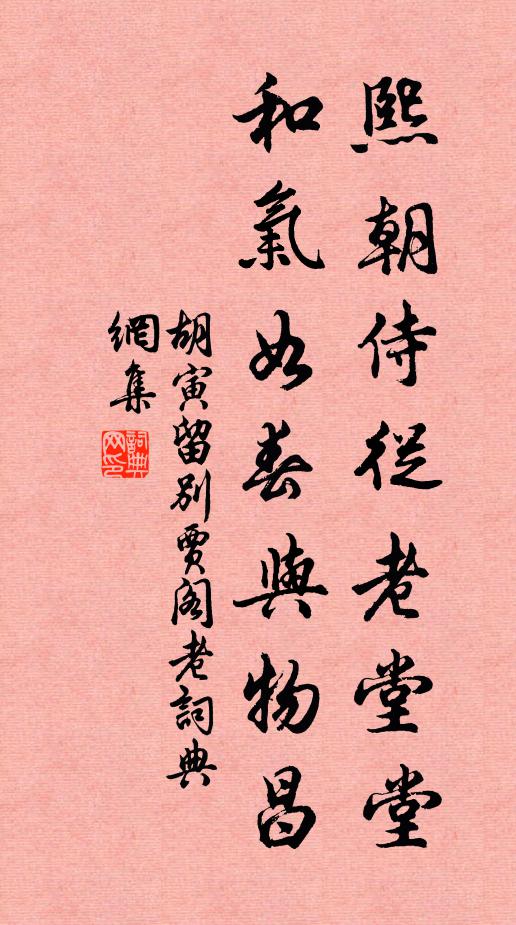 熙朝侍從老堂堂
和氣如春與物昌
胡寅留別賈閣老詞典
網集
詞典網印